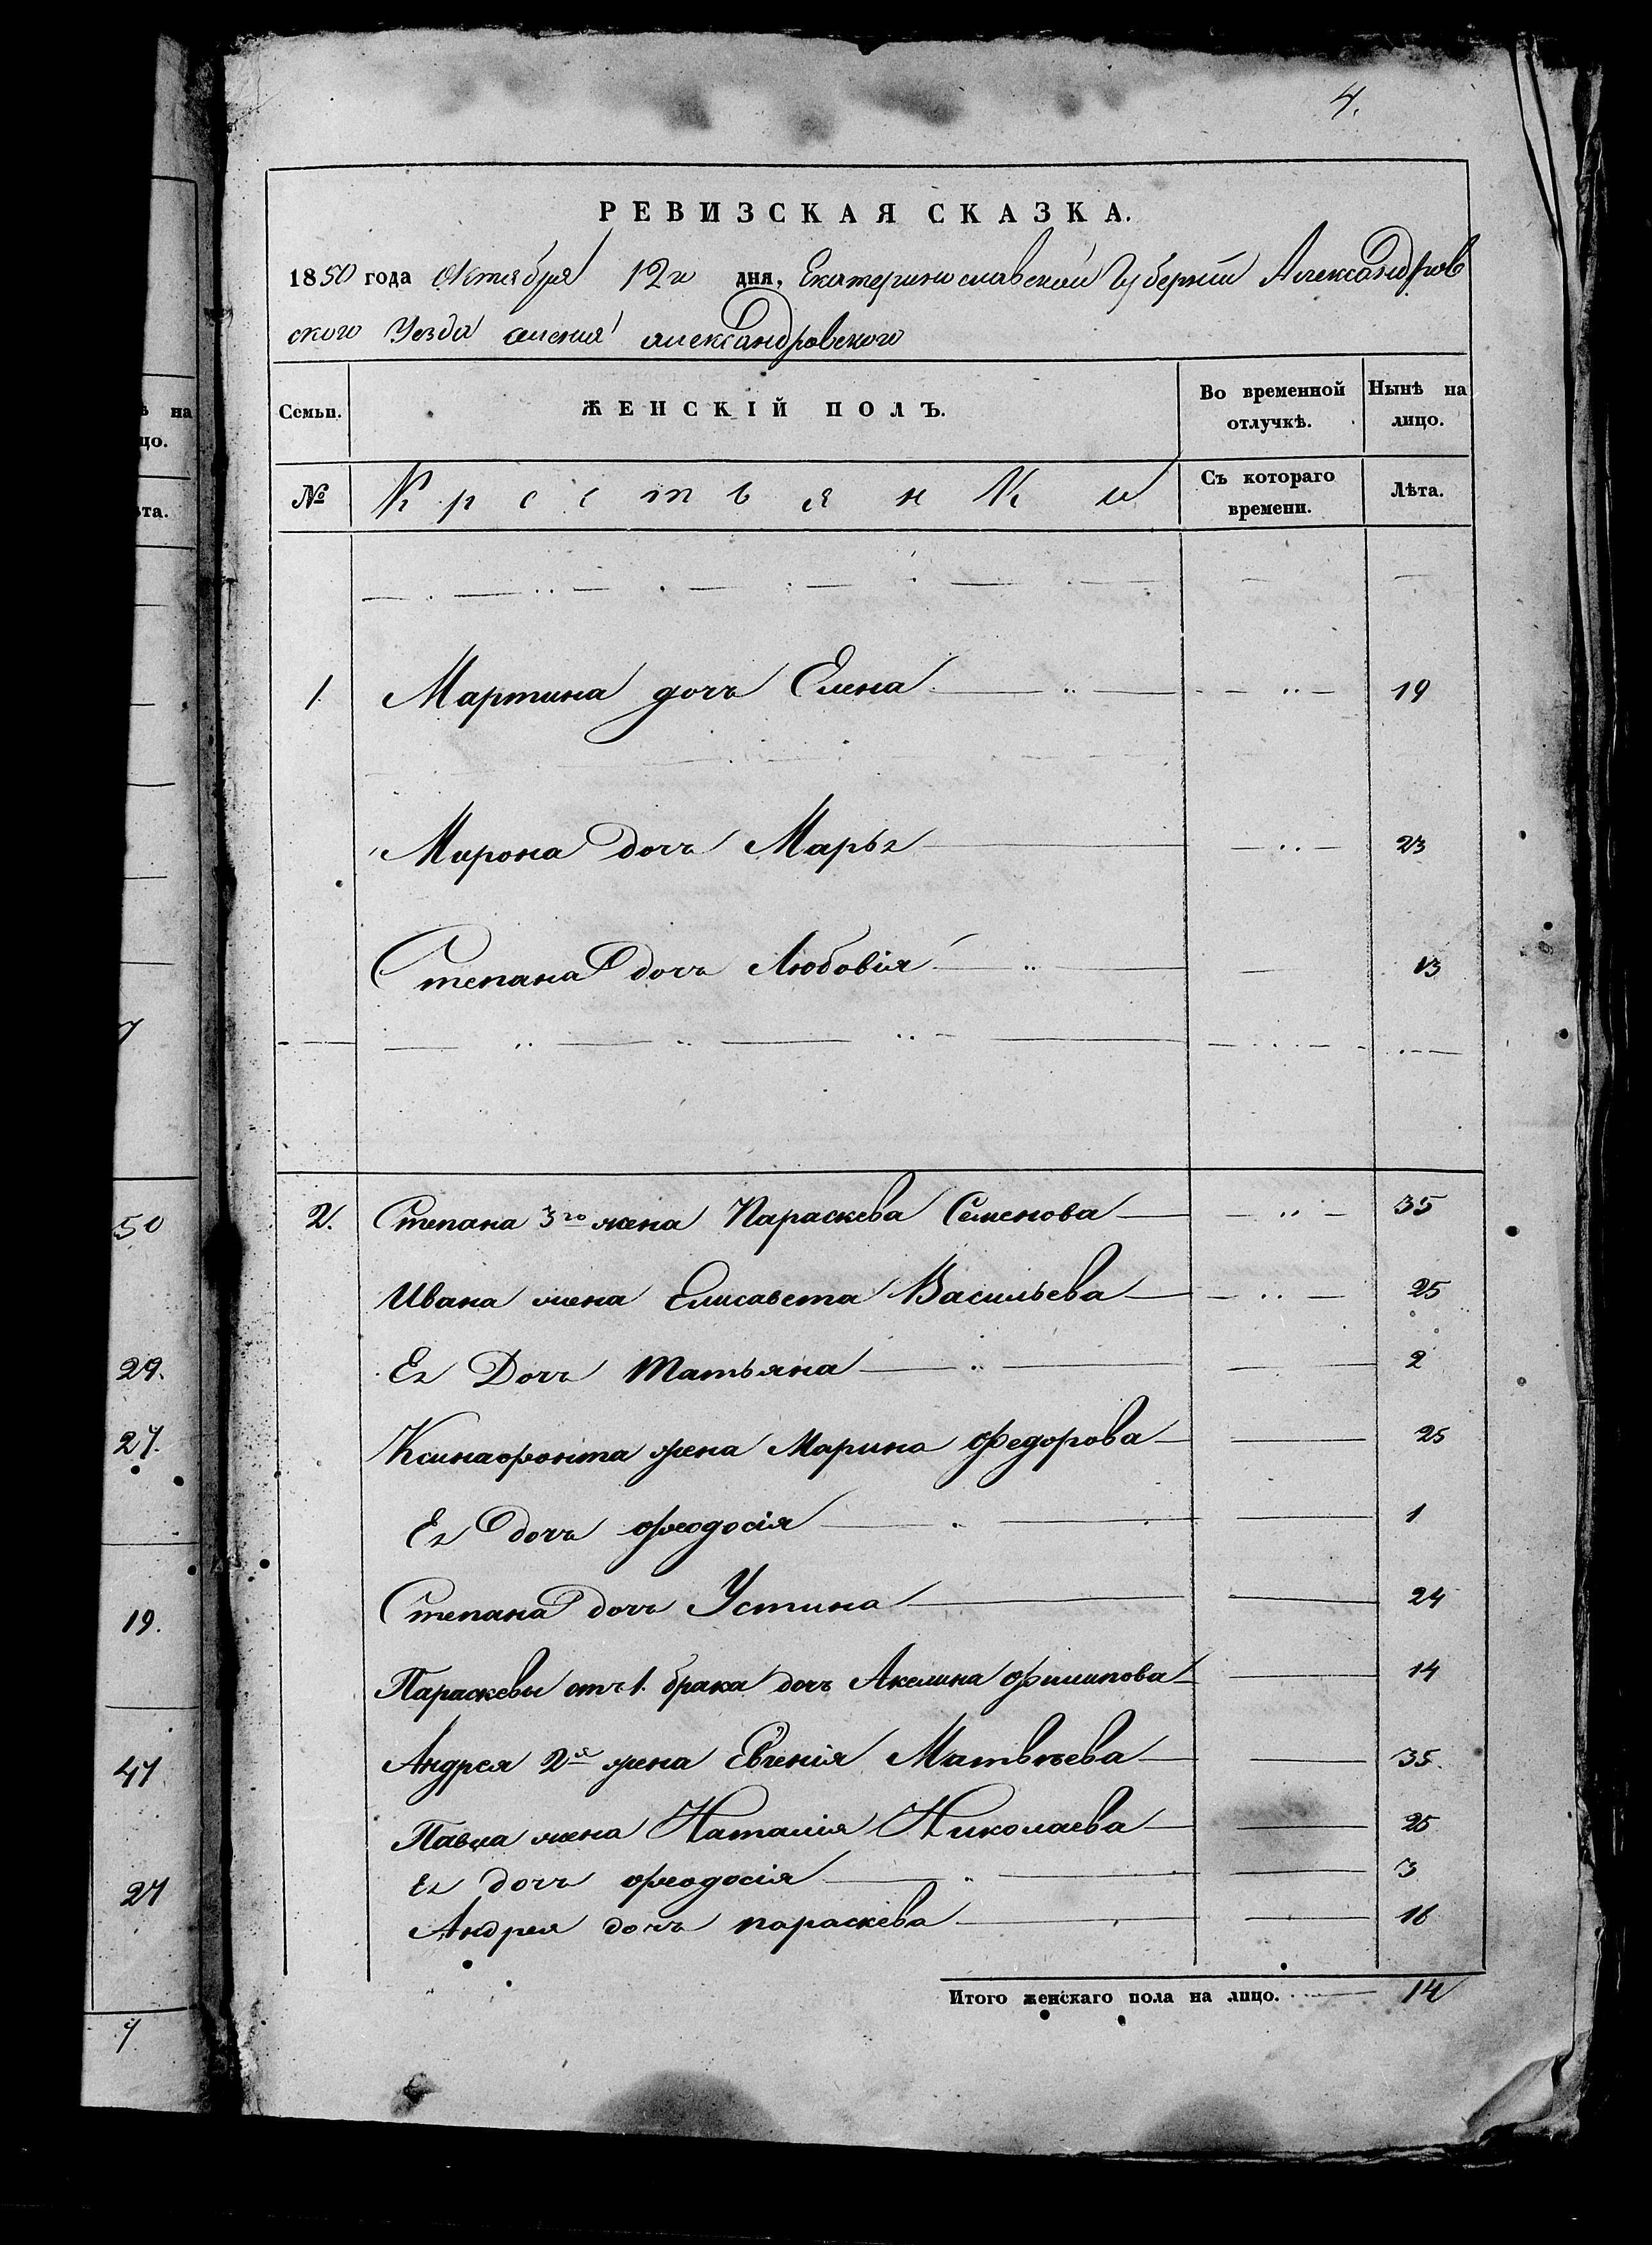 4.
РЕВИЗСКАЯ СКАЗКА.
1850 года Октября 12го дня, Екатеринославской Губернии Александров
ского Уезда имения александровского
ѣ на
цо.
Семьи.
ЖЕНСКІЙ ПОЛЪ.
Во временной отлучкѣ.
Нынѣ на лицо.
ѣта.
№
Крестьянки
Съ котораго времени.
Лѣта.
1 Мартина дочь Елена 19
Мирона дочь Марья 23
Степана дочь Любовія 13
50
2. Степана 3го жена Параскева Семенова 35
Ивана жена Елисавета Васильева 25
29. Ея Дочь Татьяна 2
27. Ксинафонта жена Марина Федорова 25
Ея дочь Феодосія 1
19. Степана дочь Устина 24
Параскевы отъ 1. брака дочь Акелина Филипова 14
47 Андрея 2я жена Евгенія Матвѣева 35.
Павла жена Наталія Николаева 25
27 Ея дочь Феодосія 3
Андрея дочь параскева 16
Итого женскаго пола на лицо. 14
7